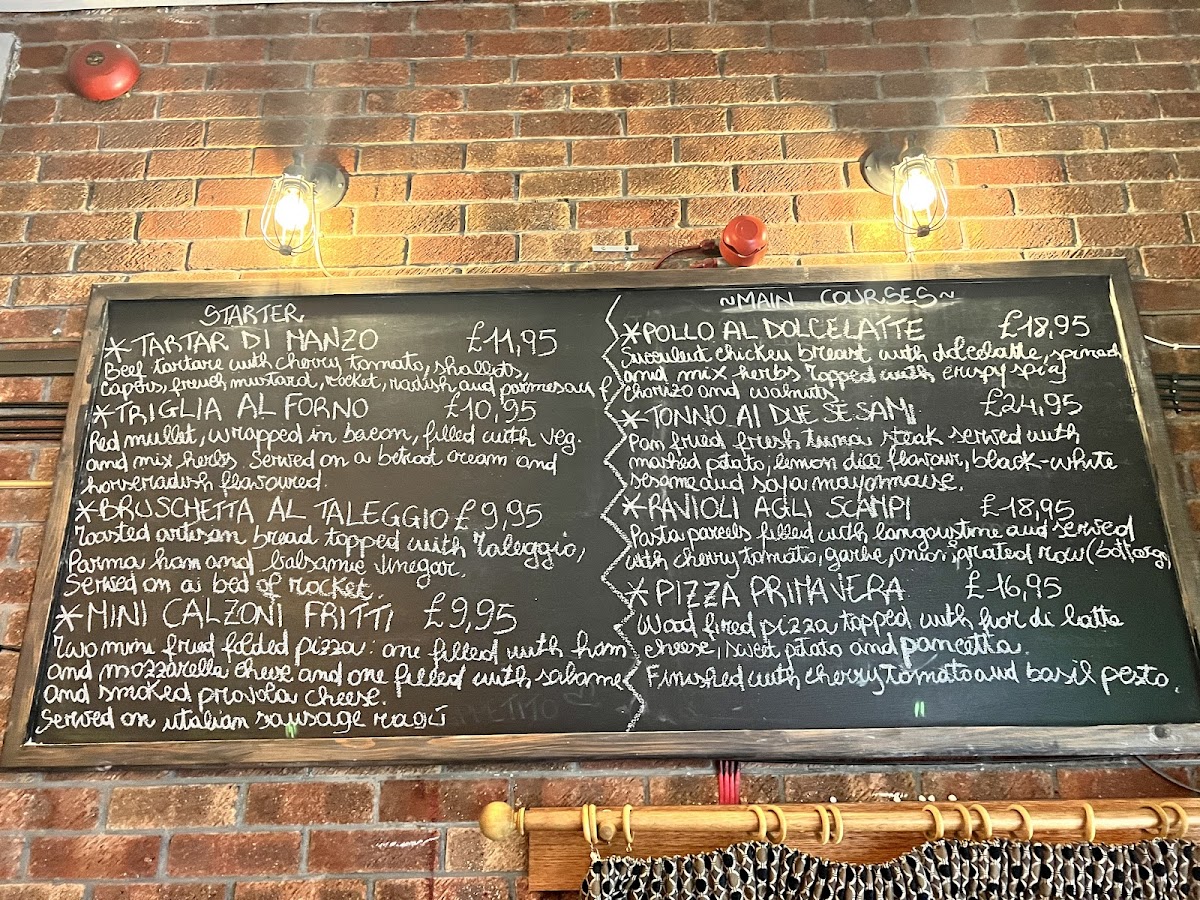 STARTER
*TARTAR DI MANZO £11,95
Beef tartare with cherry tomato, shallots,
capers, french mustard, rocket, radish and parmesan
*TRIGLIA AL FORNO £10,95
Red mullet, wrapped in bacon, filled with veg.
and mix herbs. Served on a betroot cream and
horseradish flavoured.
*BRUSCHETTA AL TALEGGIO £9,95
Toasted artisan bread topped with Taleggio,
Parma ham and balsamic vinegar.
Served on a bed of rocket.
*MINI CALZONI FRITTI £9,95
Two mini fried folded pizza: one filled with ham
and mozzarella cheese and one filled with salame
and smoked provola cheese.
Served on italian sausage ragú
~MAIN COURSES~
*POLLO AL DOLCELATTE £18,95
Succulent chicken breast with dolcelatte, spinach
and mix herbs topped with crispy spicy
chorizo and walnuts
*TONNO AI DUE SESAMI £24,95
Pan fried fresh tuna steak served with
mashed potato, lemon dice flavour, black-white
sesame and soya mayonnaise.
*RAVIOLI AGLI SCAMPI £18,95
Pasta parcels filled with langoustine and served
with cherry tomato, garlic, onion, grated row (bottarga)
*PIZZA PRIMAVERA £16,95
Wood fired pizza topped with fior di latte
cheese, sweet potato and pancetta.
Finished with cherry tomato and basil pesto.